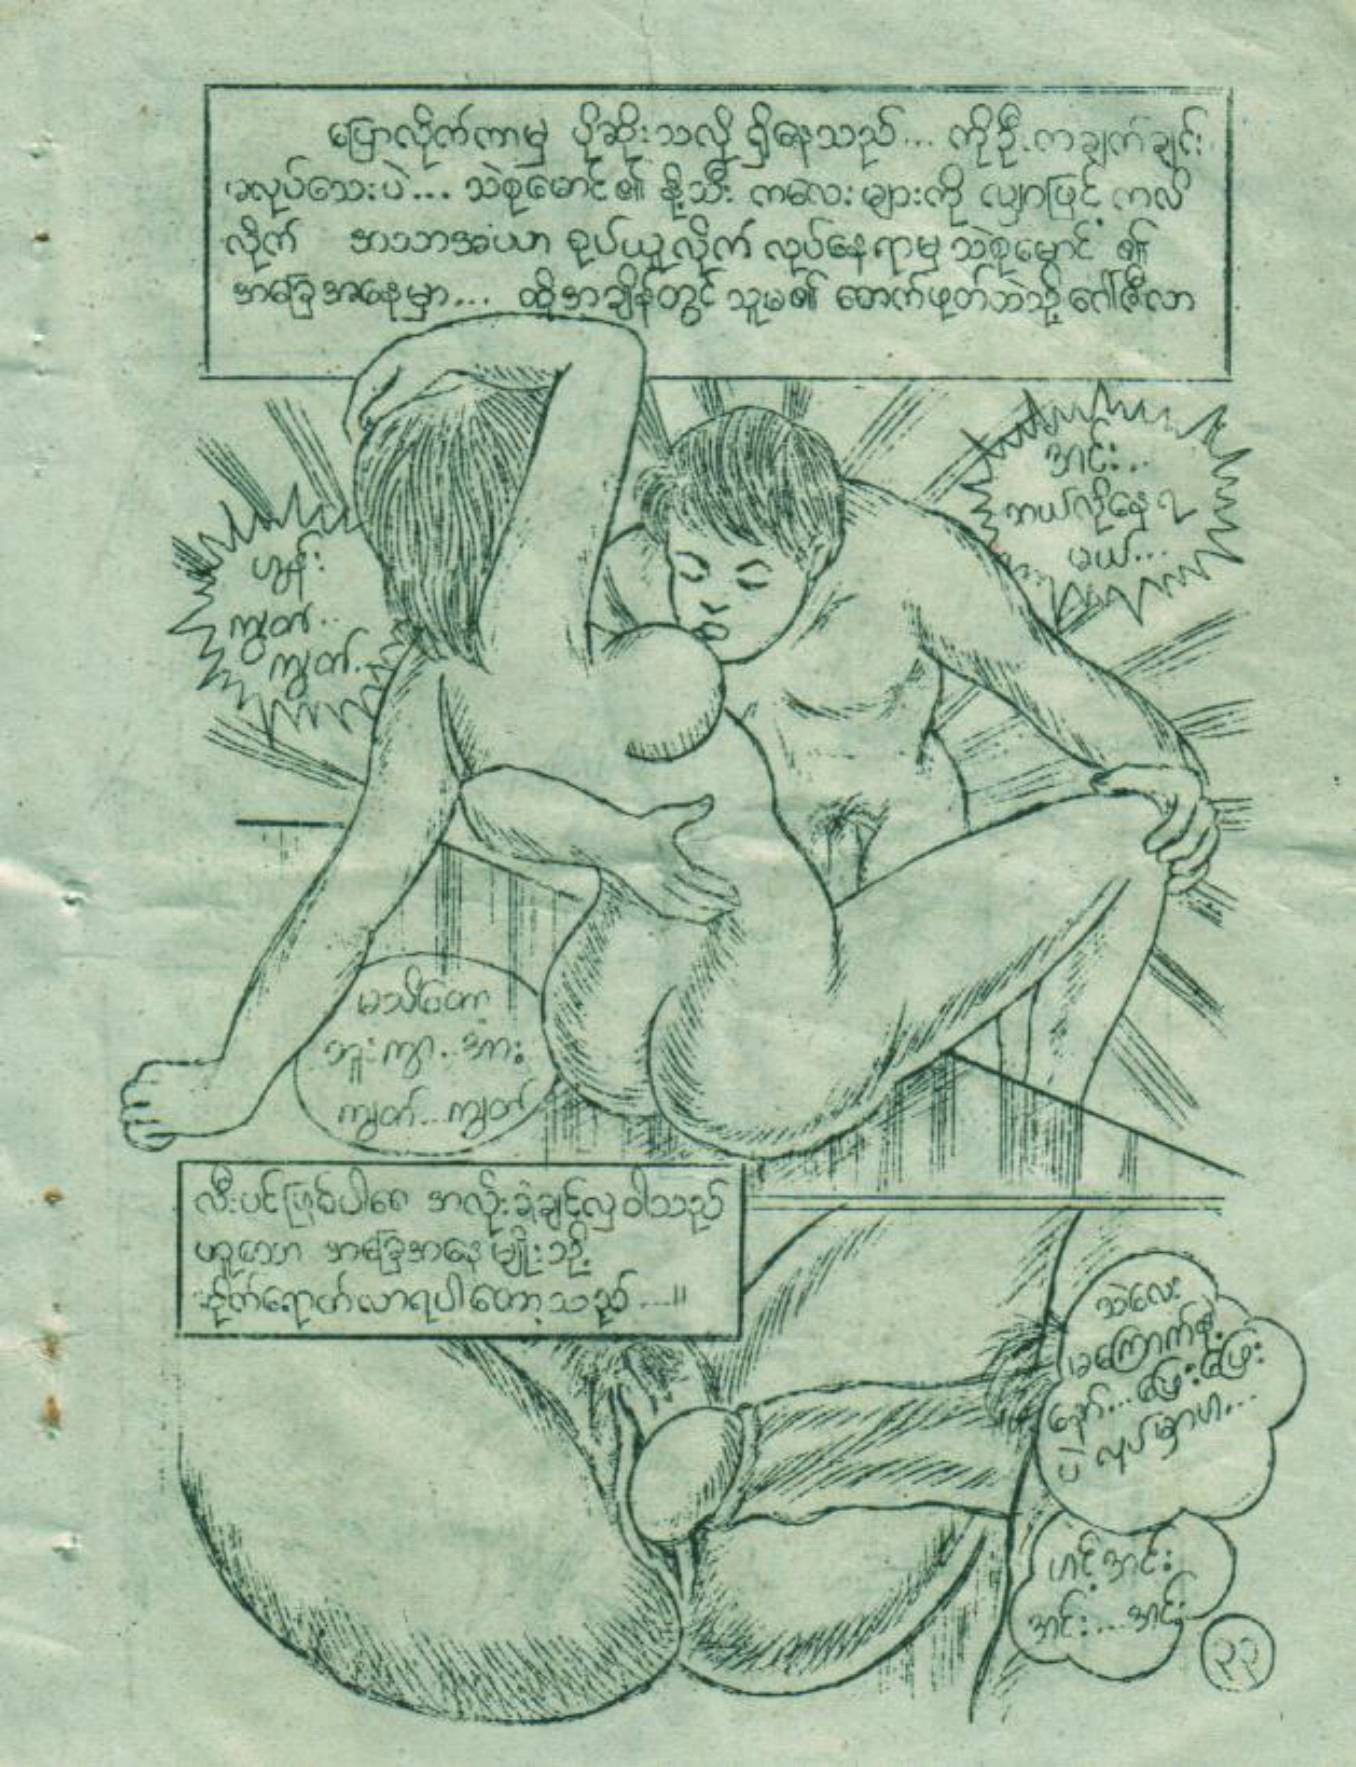 ပြောလိုက်ကာမှ ပိုဆိုးသလို ရှိနေသည်... ကိုဦးကချက်ချင်း
မလုပ်သေးပဲ... သဲစုမောင်၏ နို့သီးကလေးများကို လျှာဖြင့်ကလိ
လိုက် အသာအယာ စုပ်ယူလိုက် လုပ်နေရာမှ သဲစုမောင်၏
အခြေအနေမှာ... ထိုအချိန်တွင် သူမ၏ စောက်ဖုတ်ထဲသို့
အင်း..
ဘယ်လိုနေရ
မယ်...
ဟွန်း
ကျွတ်..
ကျွတ်..
မသိတော့
ဘူးကွာ..အား
ကျွတ်...ကျွတ်
လီးပင်ဖြစ်ပါစေ အလိုးခံချင်လှပါသည်
ဟူသော အခြေအနေမျိုးသို့
ဆိုက်ရောက်လာရပါတော့သည်...။
သဲလေး
မကြောက်နဲ့
နော်...ဖြေးဖြေး
ပဲ လုပ်မှာပါ...
ဟင့်အင်း
အင်း...အင်း
၃၃